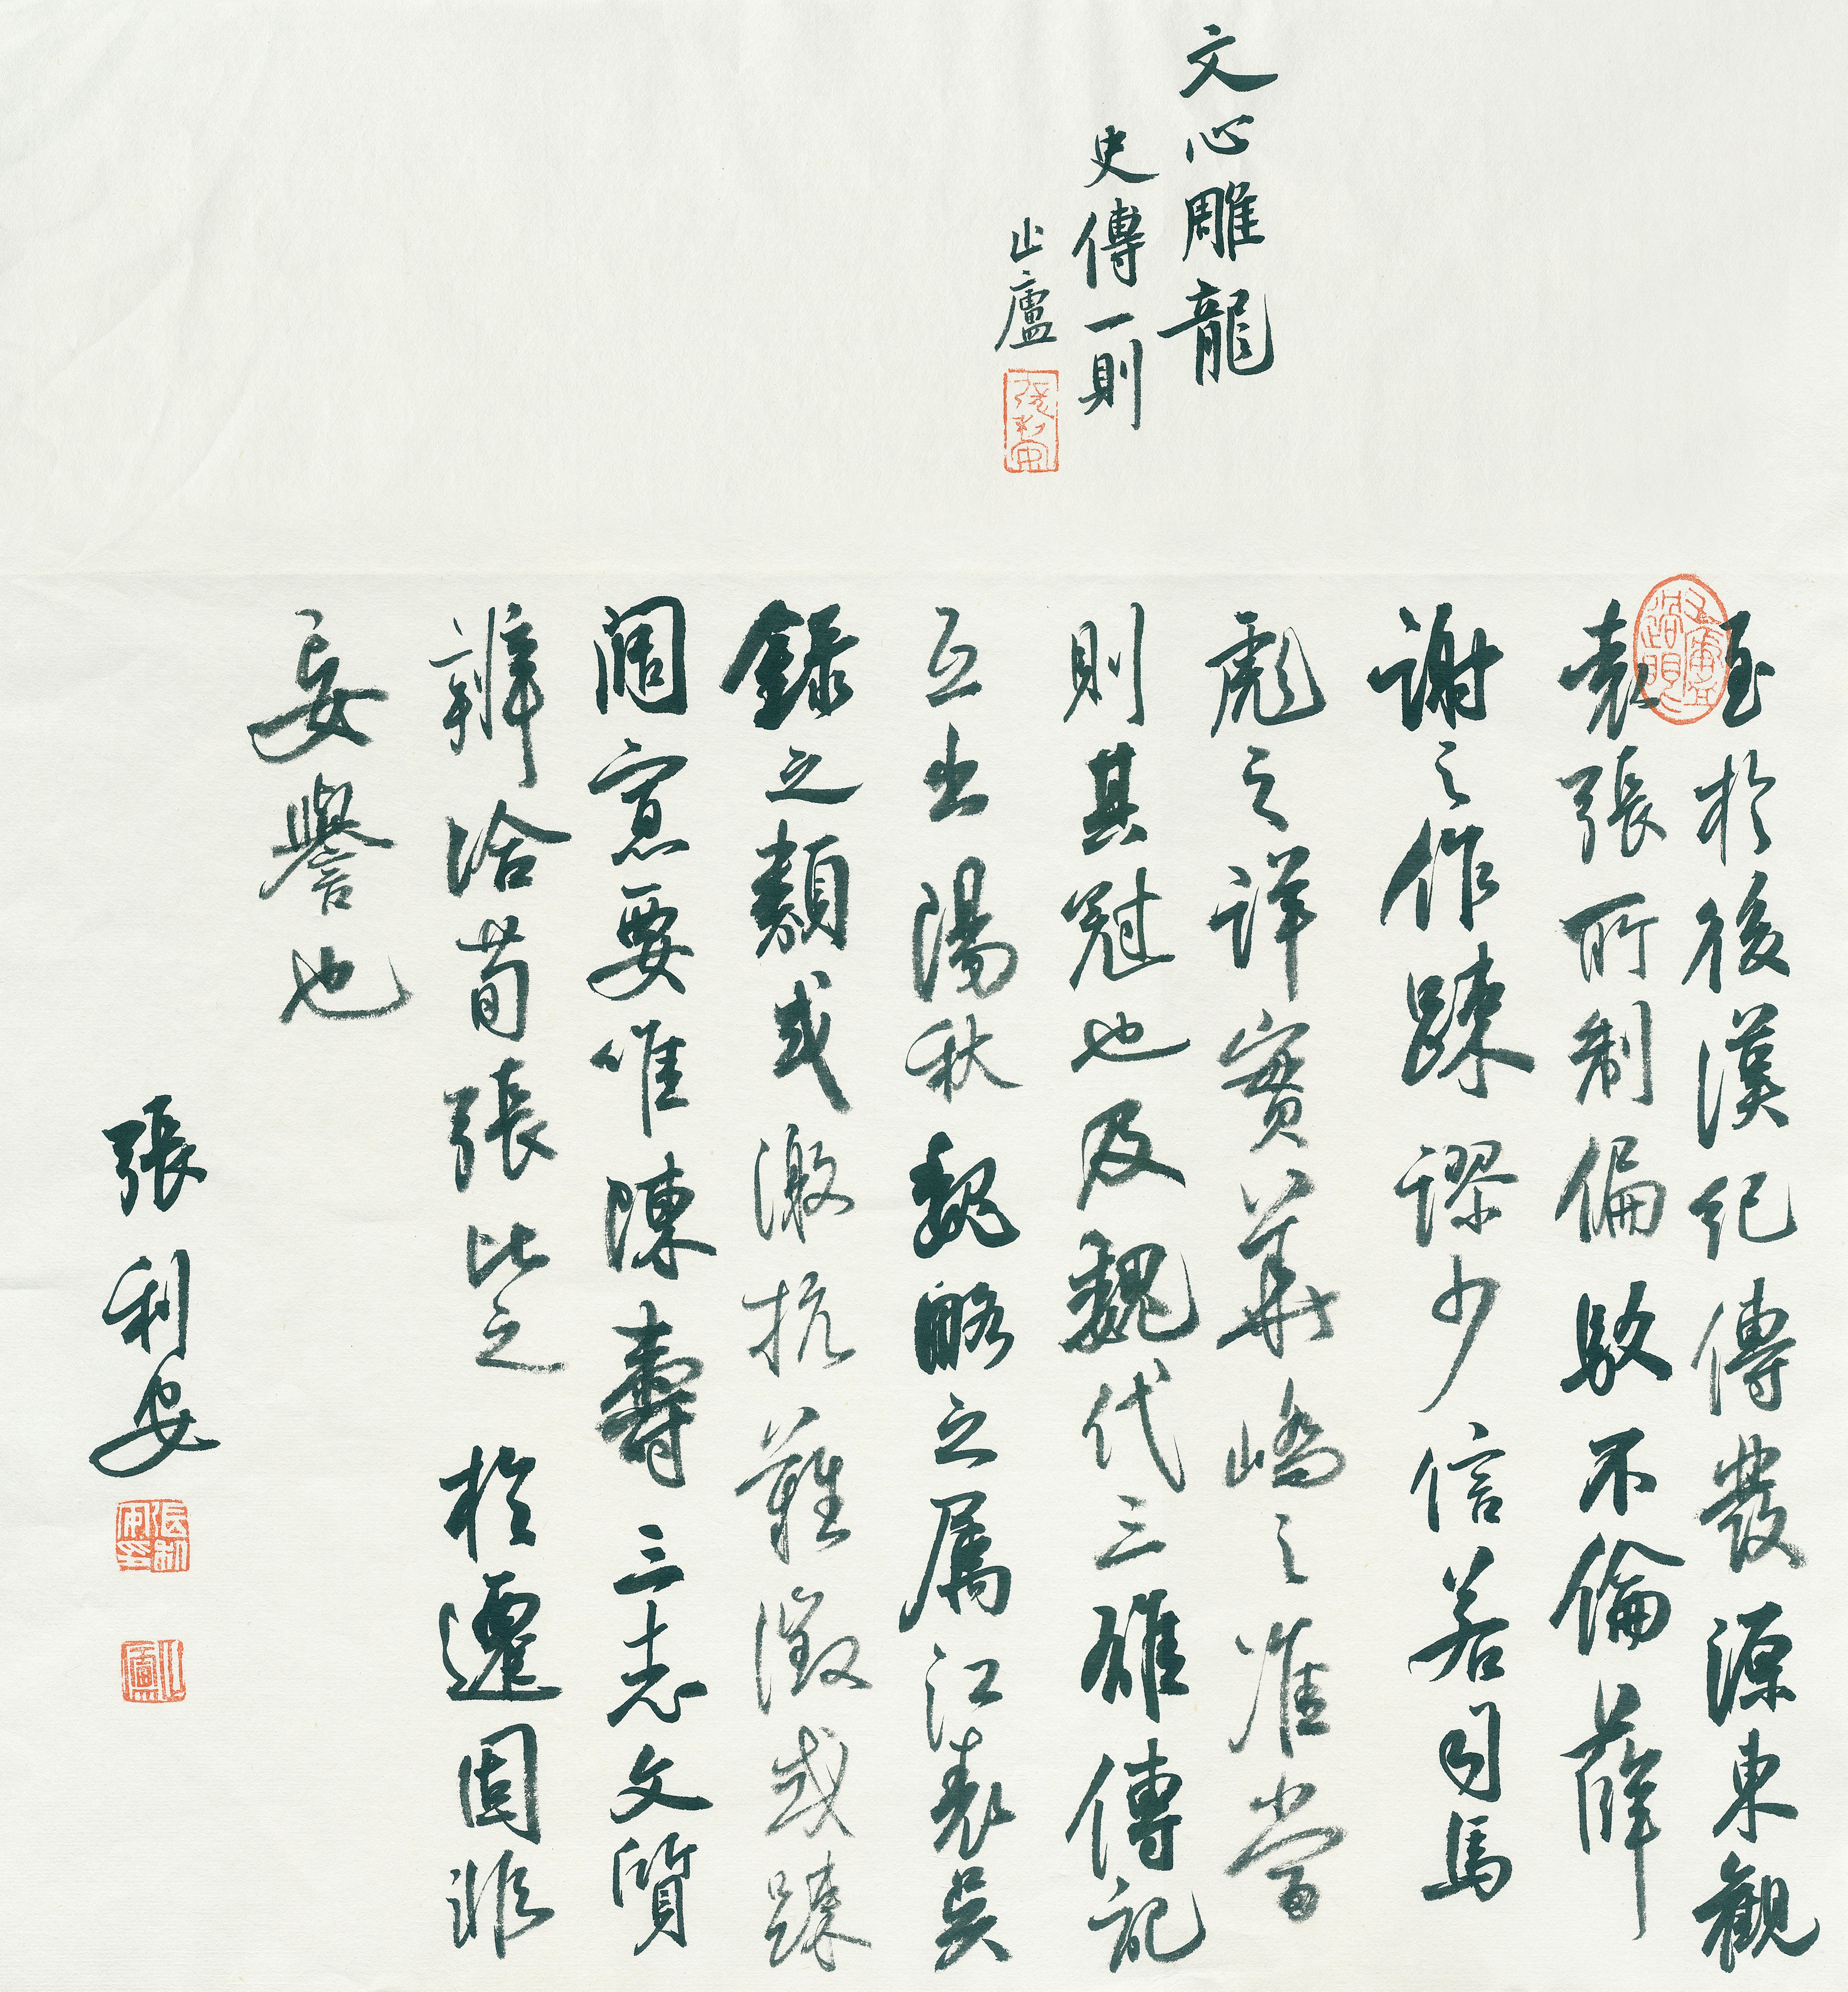 文心雕龍
史傳一則
止廬
張利安
至於後漢紀傳發源東觀
袁張所制偏駁不倫薛
謝之作踈謬少信若司馬
彪之詳實華嶠之准當
則其冠也及魏代三雄傳記
互出陽秋魏略之属江表吳
錄之類或激抗難徵或踈
闊寡要唯陳壽三志文質
辨洽荀張比之於遷固非
妄譽也
張利安
張利安印
止廬